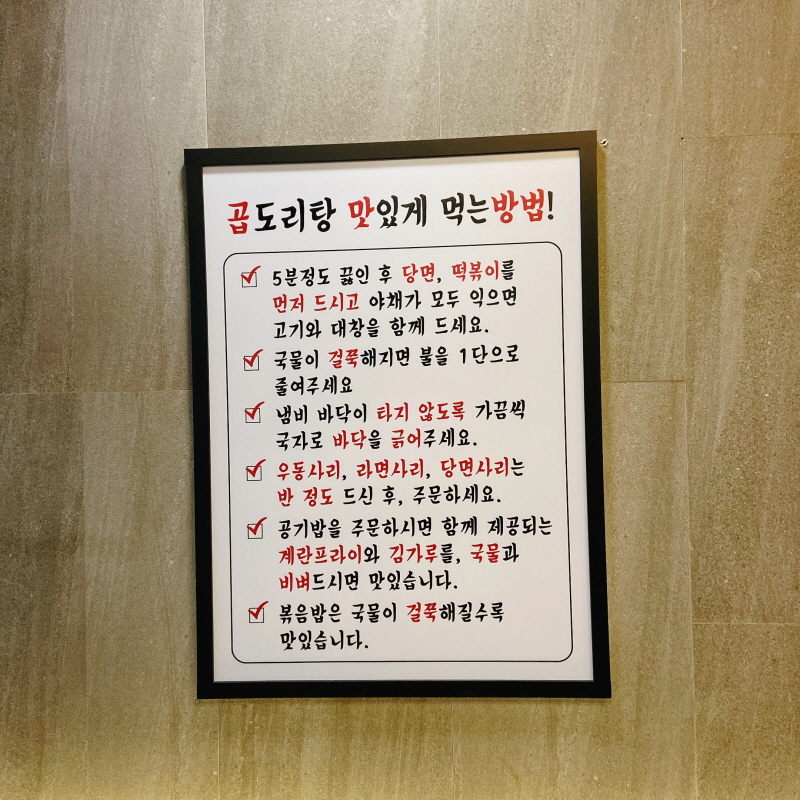 곱도리탕 맛있게 먹는방법!
5분정도 끓인 후 당면, 떡볶이를
먼저 드시고 야채가 모두 익으면
고기와 대창을 함께 드세요.
국물이 걸쭉해지면 불을 1단으로
줄여주세요
냄비 바닥이 타지 않도록 가끔씩
국자로 바닥을 긁어주세요.
우동사리, 라면사리, 당면사리는
반 정도 드신 후, 주문하세요.
공기밥을 주문하시면 함께 제공되는
계란프라이와 김가루를, 국물과
비벼드시면 맛있습니다.
볶음밥은 국물이 걸쭉해질수록
맛있습니다.